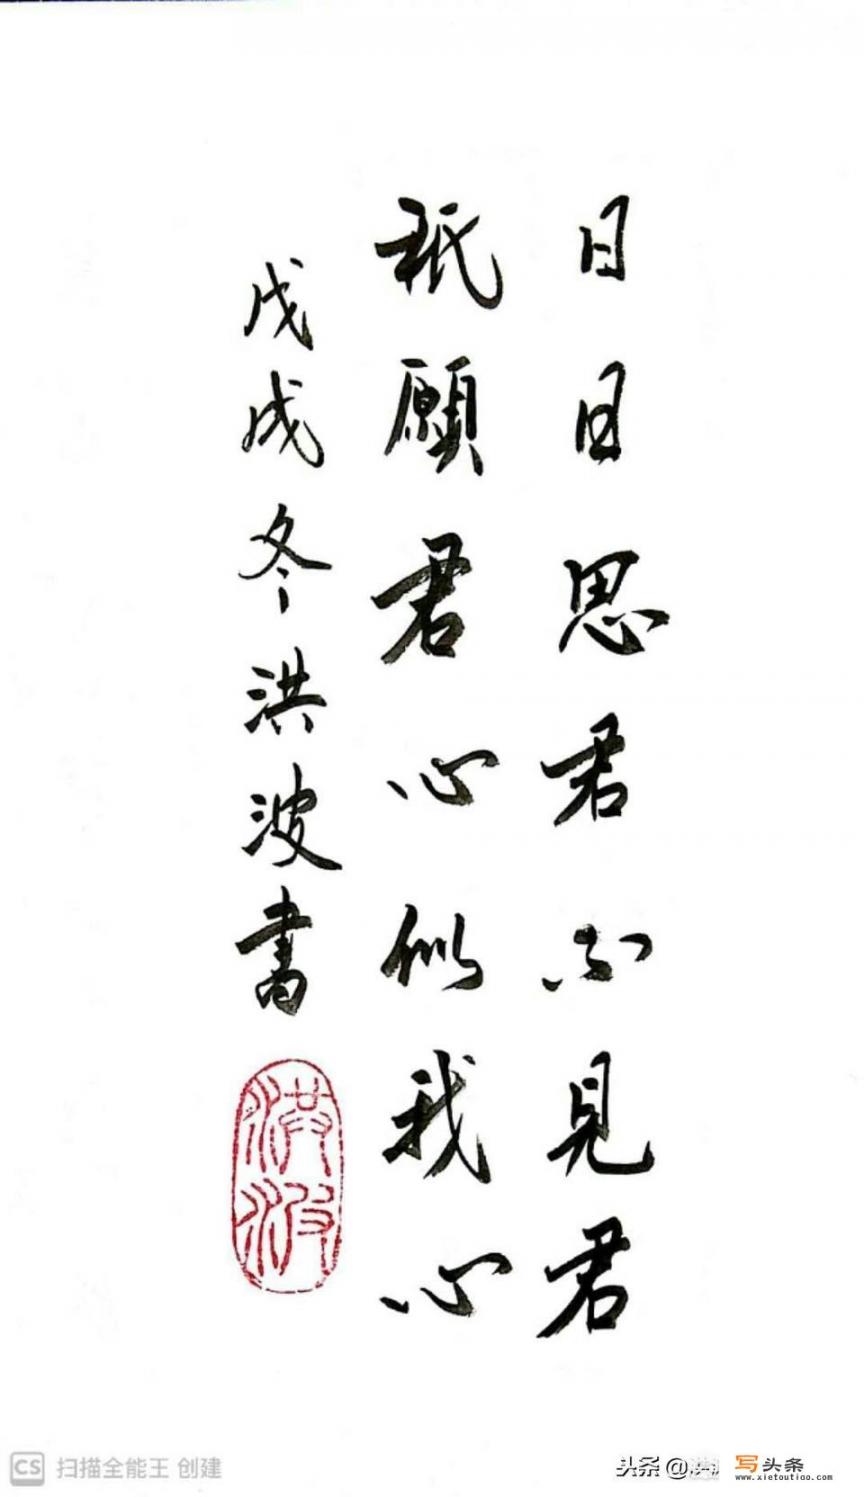 日日思君不見君
秖願君心似我心
戊戌冬洪波書
洪波
CS 扫描全能王 创建
头条@洪
写头条
www.xietoutiao.com